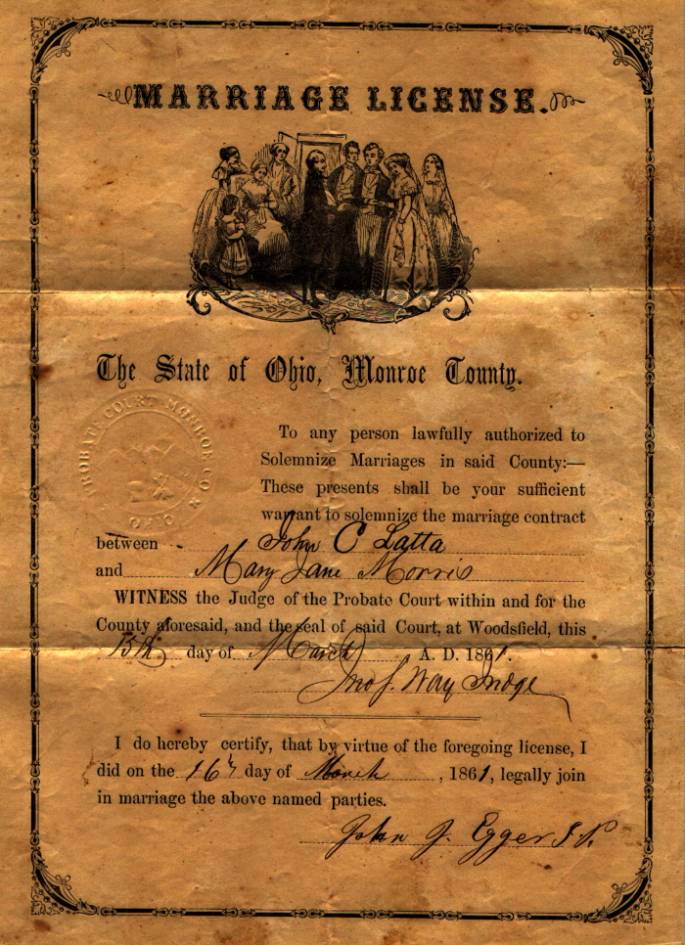 MARRIAGE LICENSE.
The State of Ohio, Monroe County.
PROBATE COURT MONROE CO.
OHIO
To any person lawfully authorized to
Solemnize Marriages in said County:—
These presents shall be your sufficient
warrant to solemnize the marriage contract
between John C Latta
and Mary Jane Morris
WITNESS the Judge of the Probate Court within and for the
County aforesaid, and the seal of said Court, at Woodsfield, this
15th day of March A. D. 1861.
Jno S. Way Judge
I do hereby certify, that by virtue of the foregoing license, I
did on the 16th day of March, 1861, legally join
in marriage the above named parties.
John J. Egger J.P.